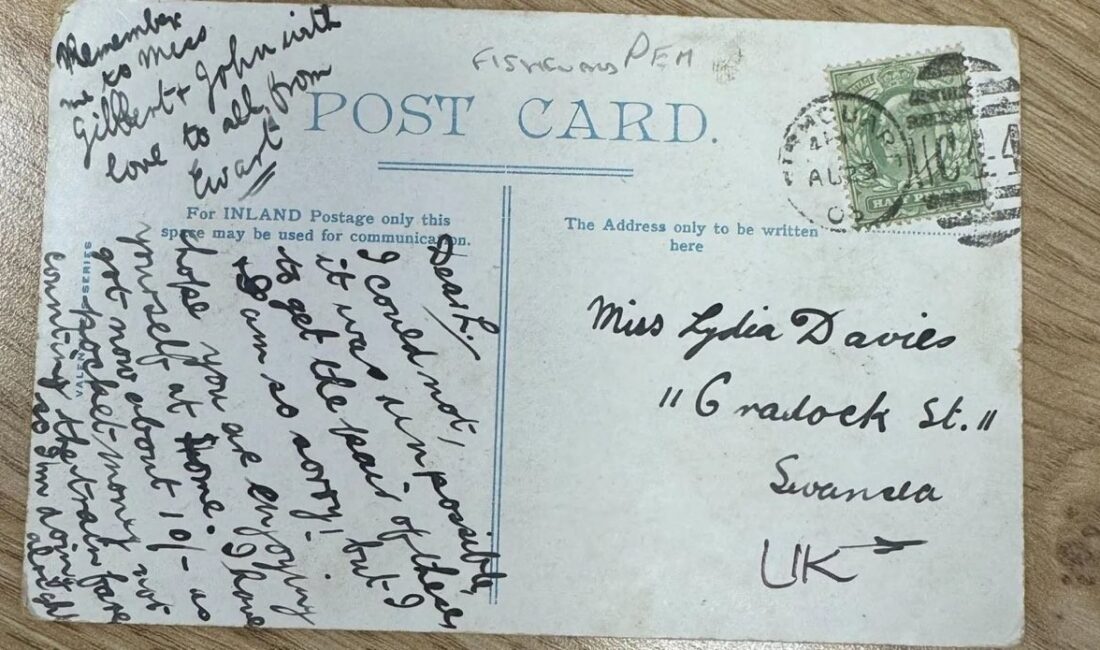 Remember
me to Miss
Gilbert + John with
love to all, from
Ewart
FISHGUARD PEM
POST CARD.
For INLAND Postage only this
space may be used for communication.
The Address only to be written
here
VALENTINE'S SERIES
Dear L.
I could not,
it was unpossible,
to get the pair of these
but I
+ I am so sorry!
hope you are enjoying
yourself at Home. I have
got now about 10/- as
pocket-money not
counting the train fare
so I'm doing
alright
Miss Lydia Davies
"Cradock St."
Swansea
UK
FISHGUARD
AU 23
03
HALF PENNY